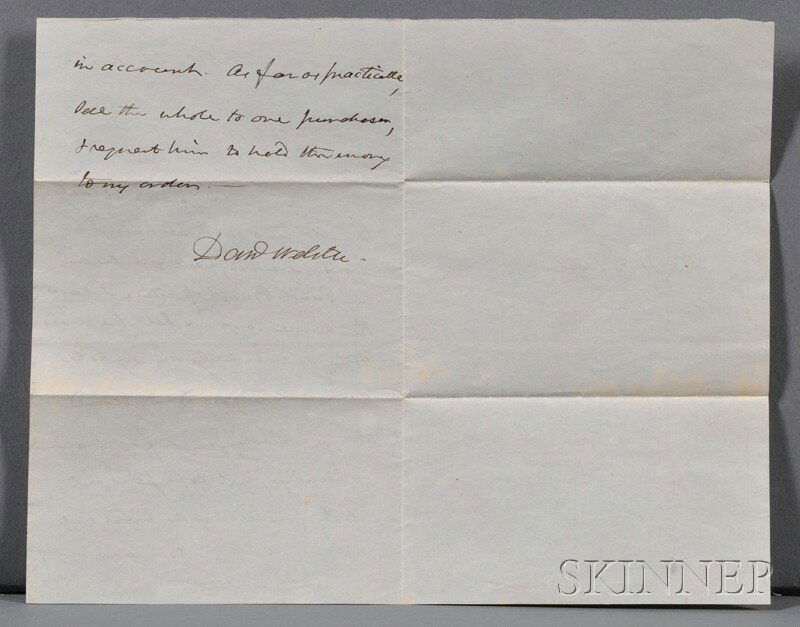 in account. As far as practicable,
Sell the whole to one purchaser,
& request him to hold the money
to my orders. —
Danl Webster.
SKINNER